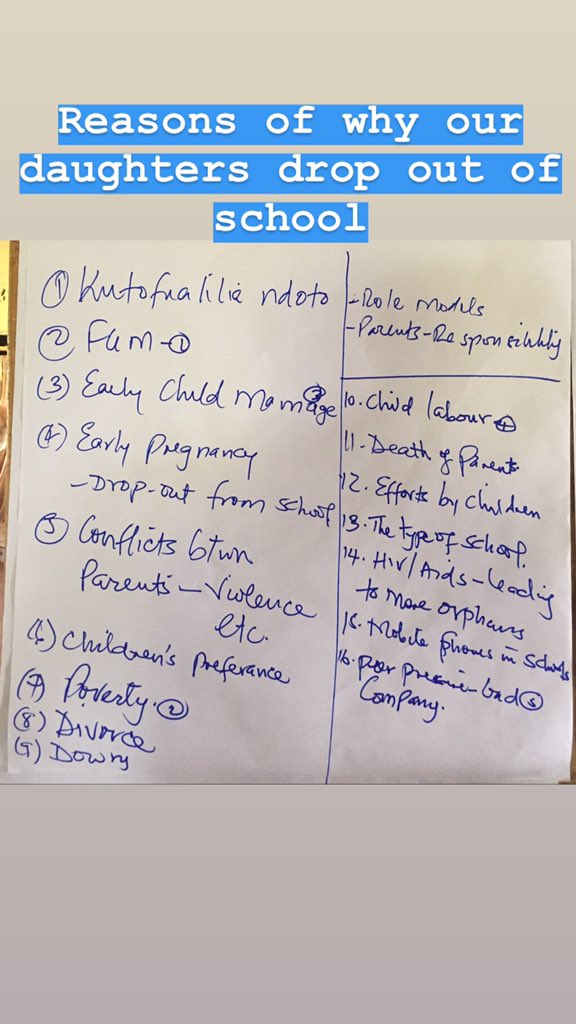 Reasons of why our
daughters drop out of
school
① Kutofualilia ndoto
② FGM - ①
(3) Early Child Marriage ③
(4) Early Pregnancy
- Drop-out from school
⑤ Conflicts btwn
Parents - Violence
etc.
(6) Children's Preferance
(7) Poverty. ②
(8) Divorce
(9) Dowry
- Role Models
- Parents - Responsibility
10. Child labour ④
11. Death of Parents
12. Efforts by Children
13. The type of school.
14. HIV/Aids - leading
to more orphans
15. Mobile phones in schools
16. peer pressure - bad ⑤
Company.